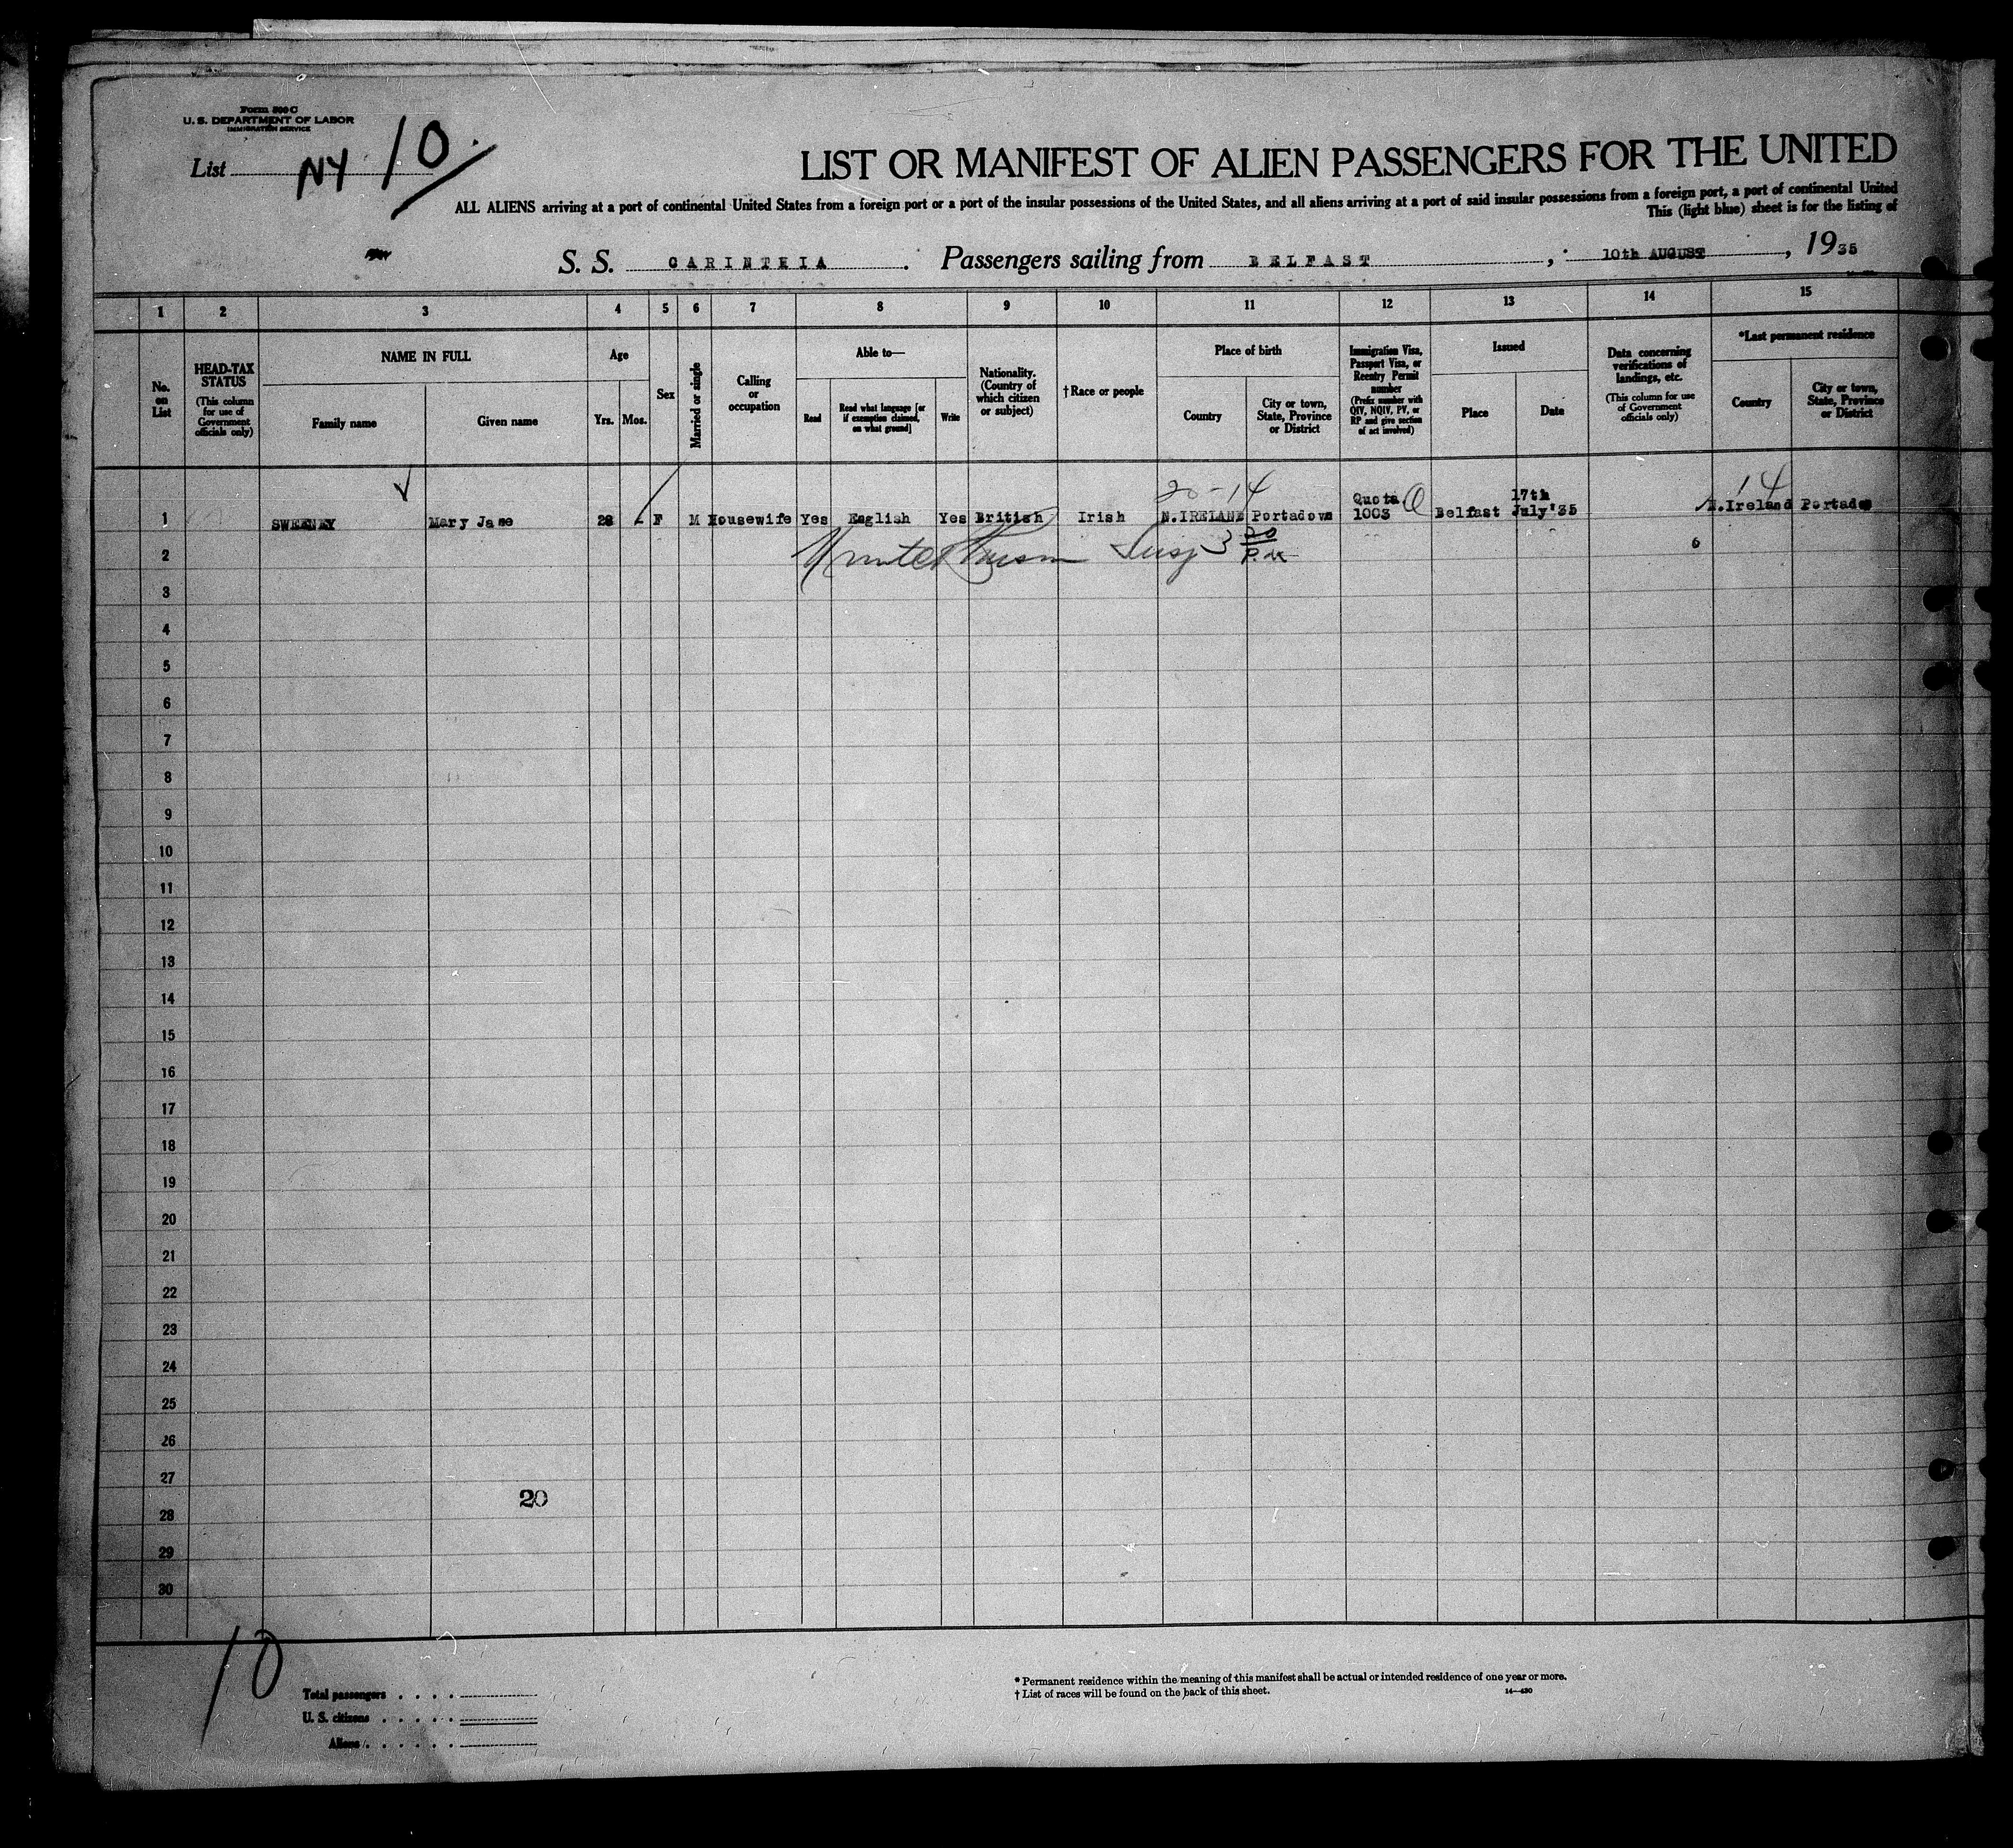 Form 500 C
U. S. DEPARTMENT OF LABOR
IMMIGRATION SERVICE
List NY 10
LIST OR MANIFEST OF ALIEN PASSENGERS FOR THE UNITED
ALL ALIENS arriving at a port of continental United States from a foreign port or a port of the insular possessions of the United States, and all aliens arriving at a port of said insular possessions from a foreign port, a port of continental United
This (light blue) sheet is for the listing of
S. S. CARINTHIA . Passengers sailing from BELFAST , 10th AUGUST , 1935
1 2 3 4 5 6 7 8 9 10 11 12 13 14 15
No. on List
HEAD-TAX STATUS (This column for use of Government officials only)
NAME IN FULL
Family name
Given name
Age
Yrs. Mos.
Sex
Married or single
Calling or occupation
Able to—
Read
Read what language [or if exemption claimed, on what ground]
Write
Nationality. (Country of which citizen or subject)
† Race or people
Place of birth
Country
City or town, State, Province or District
Immigration Visa, Passport Visa, or Reentry Permit number (Prefix number with QIV, NQIV, PV, or RP and give section of act involved)
Issued
Place
Date
Data concerning verifications of landings, etc. (This column for use of Government officials only)
*Last permanent residence
Country
City or town, State, Province or District
20-14
14
1 SWEENEY Mary Jane 28 - F M Housewife Yes English Yes British Irish N.IRELAND Portadown Quota 1003 Belfast 17th July'35 N.Ireland Portadow
2 3 20 P.M
3
4
5
6
7
8
9
10
11
12
13
14
15
16
17
18
19
20
21
22
23
24
25
26
27
20
28
29
30
10
Total passengers . . . .
U. S. citizens . . . . .
Aliens . . . . . .
* Permanent residence within the meaning of this manifest shall be actual or intended residence of one year or more.
† List of races will be found on the back of this sheet.
14—430